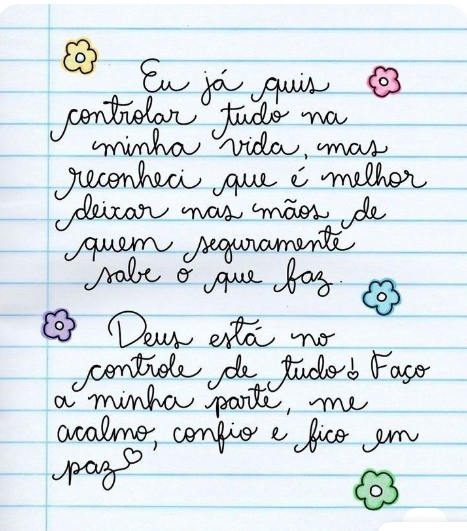 Eu já quis
controlar tudo na
minha vida, mas
reconheci que é melhor
deixar nas mãos de
quem seguramente
sabe o que faz.
Deus está no
controle de tudo! Faço
a minha parte, me
acalmo, confio e fico em
paz♡